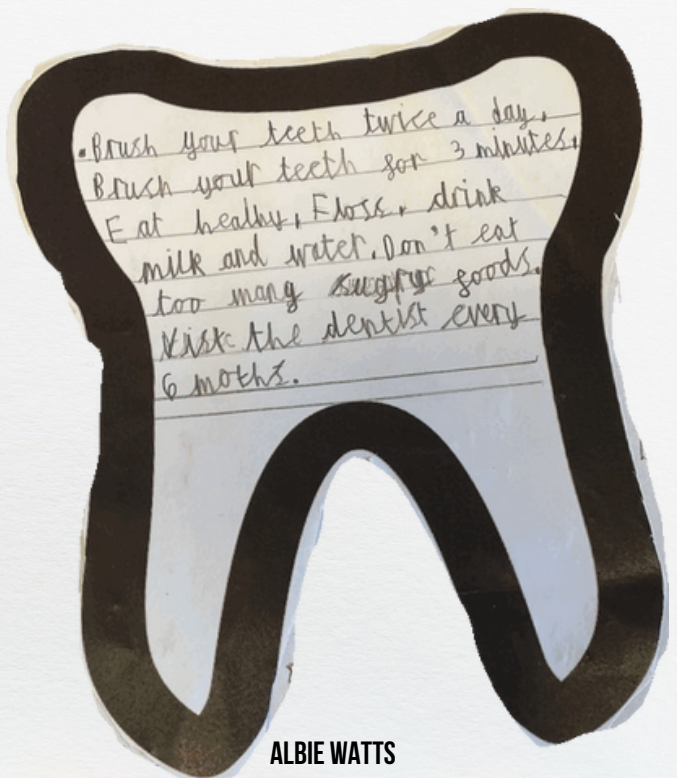 .Brush your teeth twice a day.
Brush your teeth for 3 minutes.
Eat healhy, Floss, drink
milk and water. Don't eat
too many foods.
the dentist every
6 moths.
ALBIE WATTS